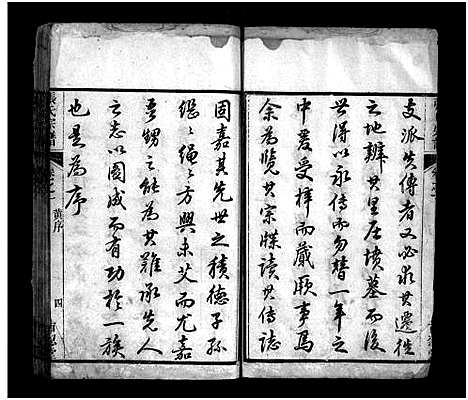 支派失傳者又必求其遷徙
之地辨其里居墳墓而後
世得以永傳而勿替一年之
中爰受梓而蕆厥事焉
余為覽其宗牒讀其傳誌
固嘉其先世之積德子孫
繼繼繩繩方興未艾而尤嘉
吾甥之能為其難承先人
之志以圖成而有功於一族
也是為序
張氏宗譜
黄序
四